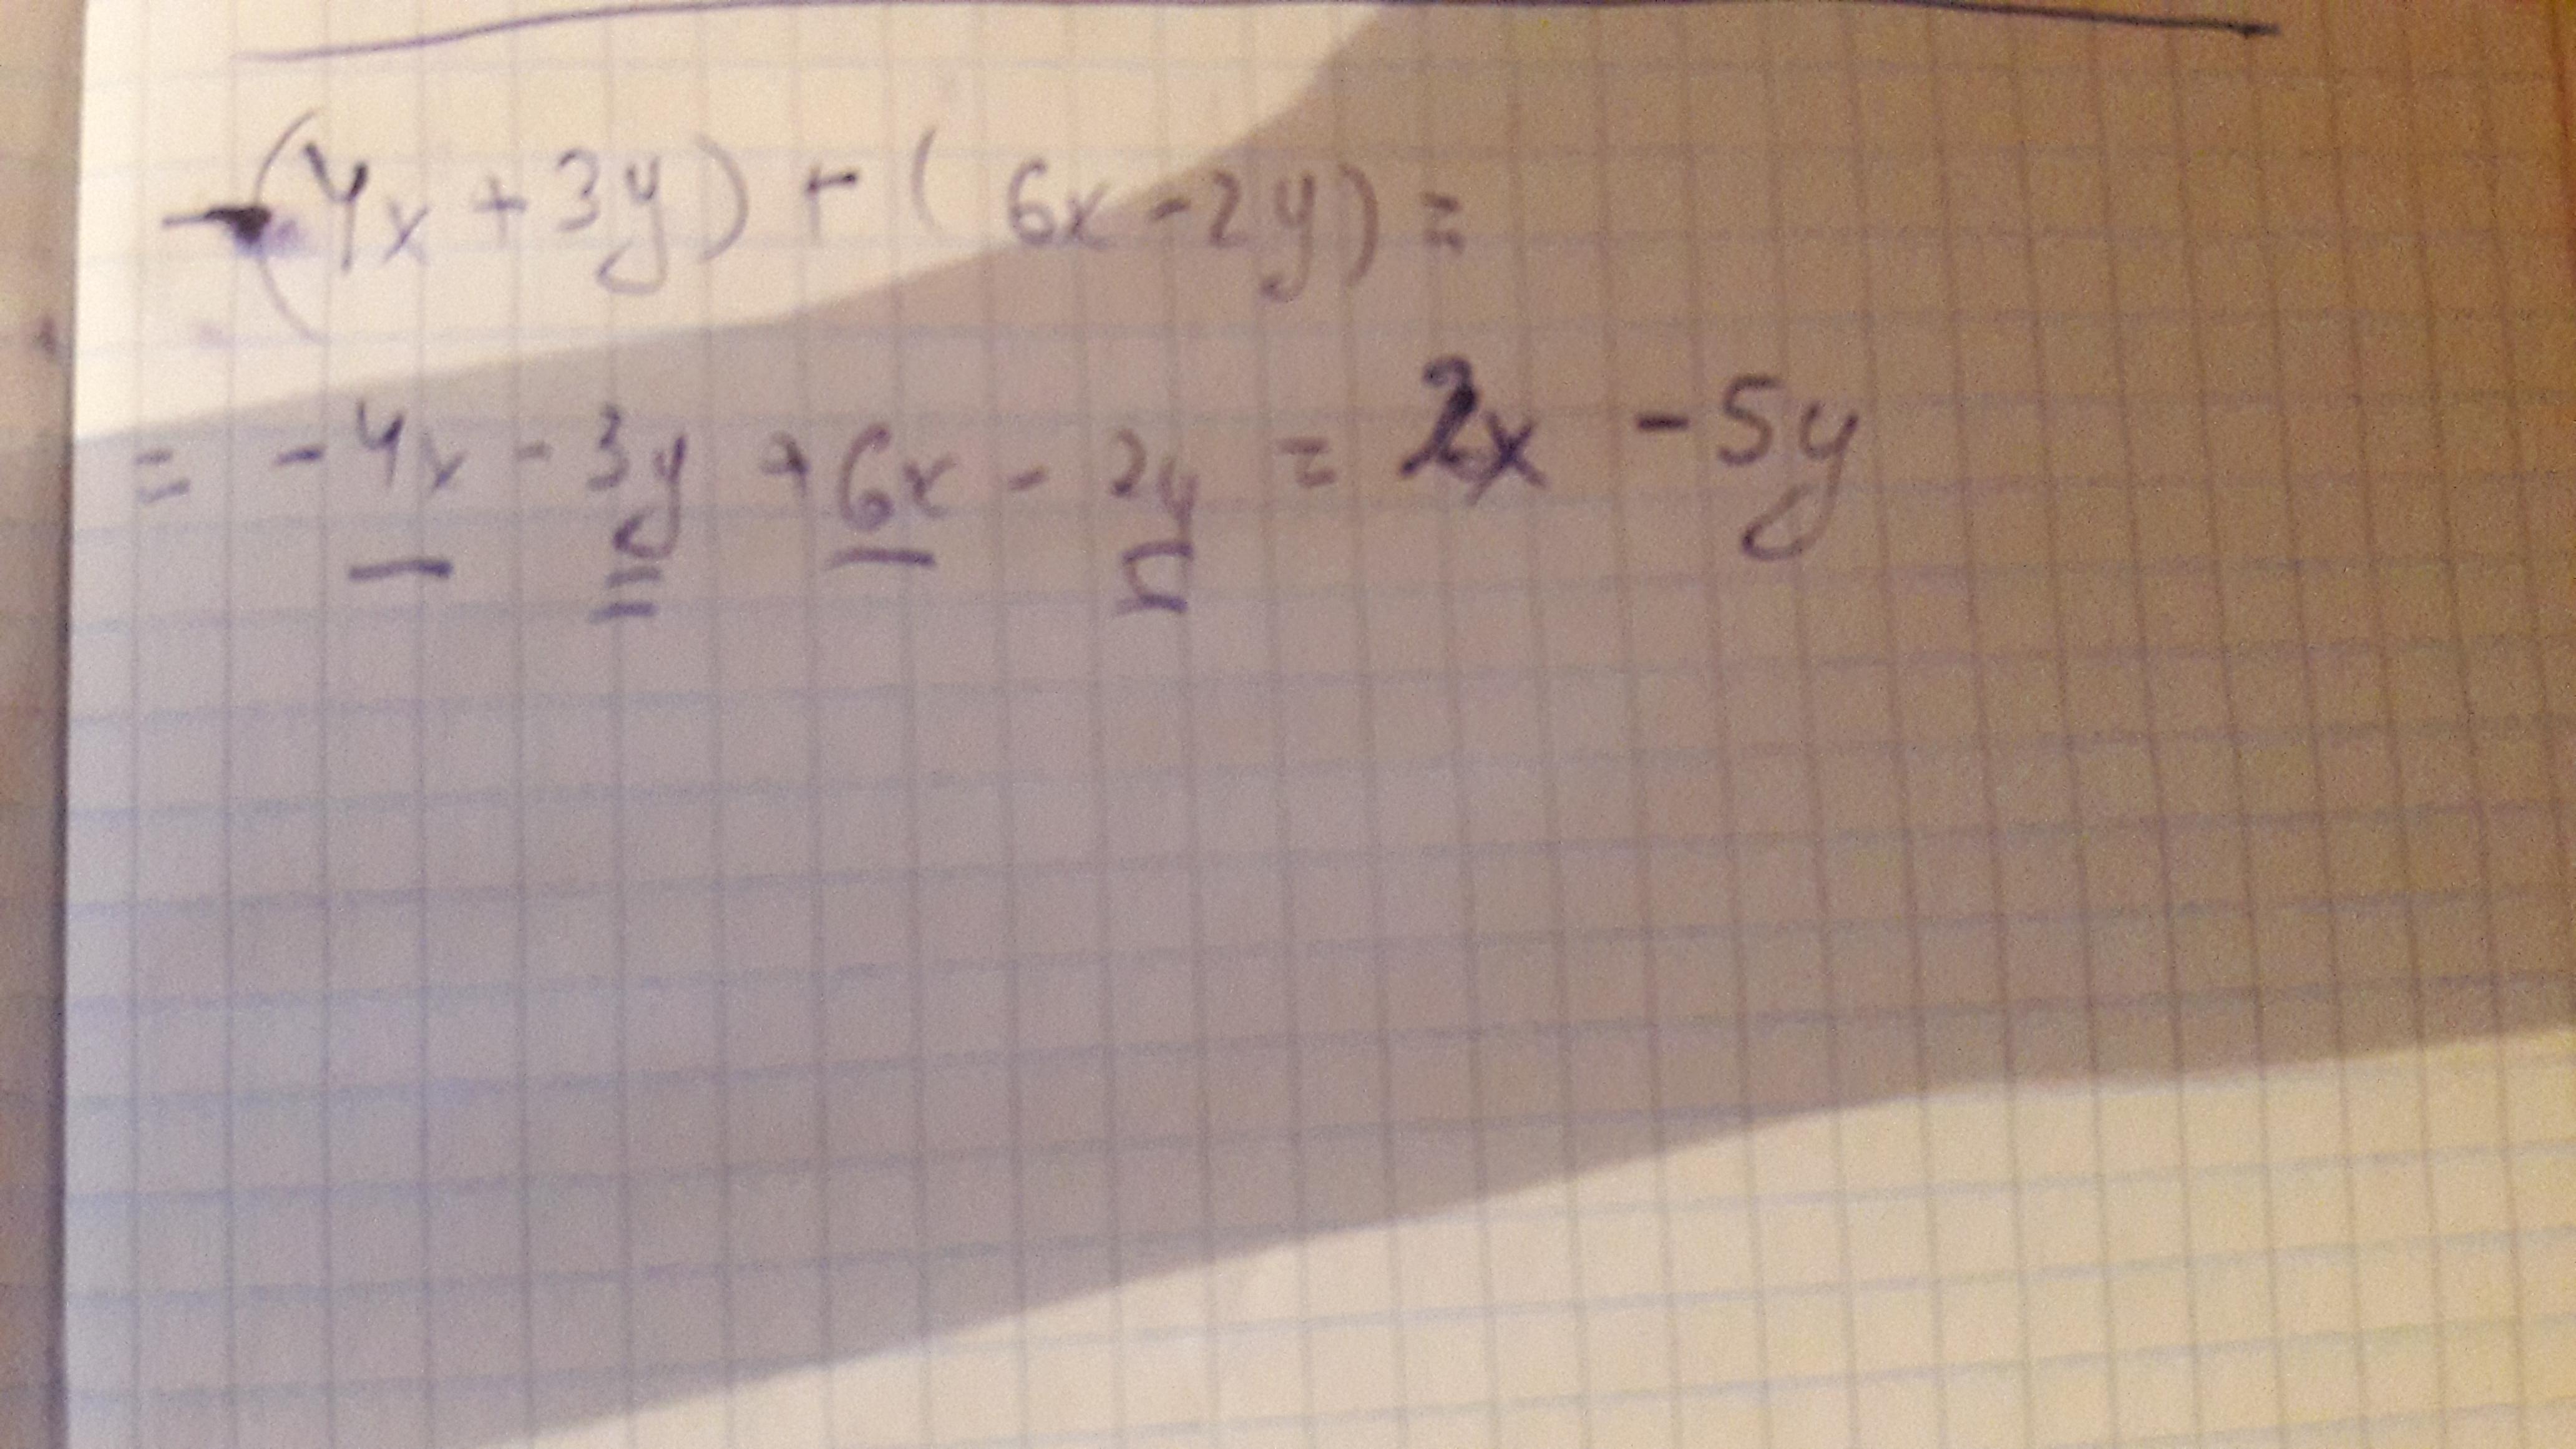 -(4x + 3y) + (6x - 2y) =
= - 4x - 3y + 6x - 2y = 2x - 5y